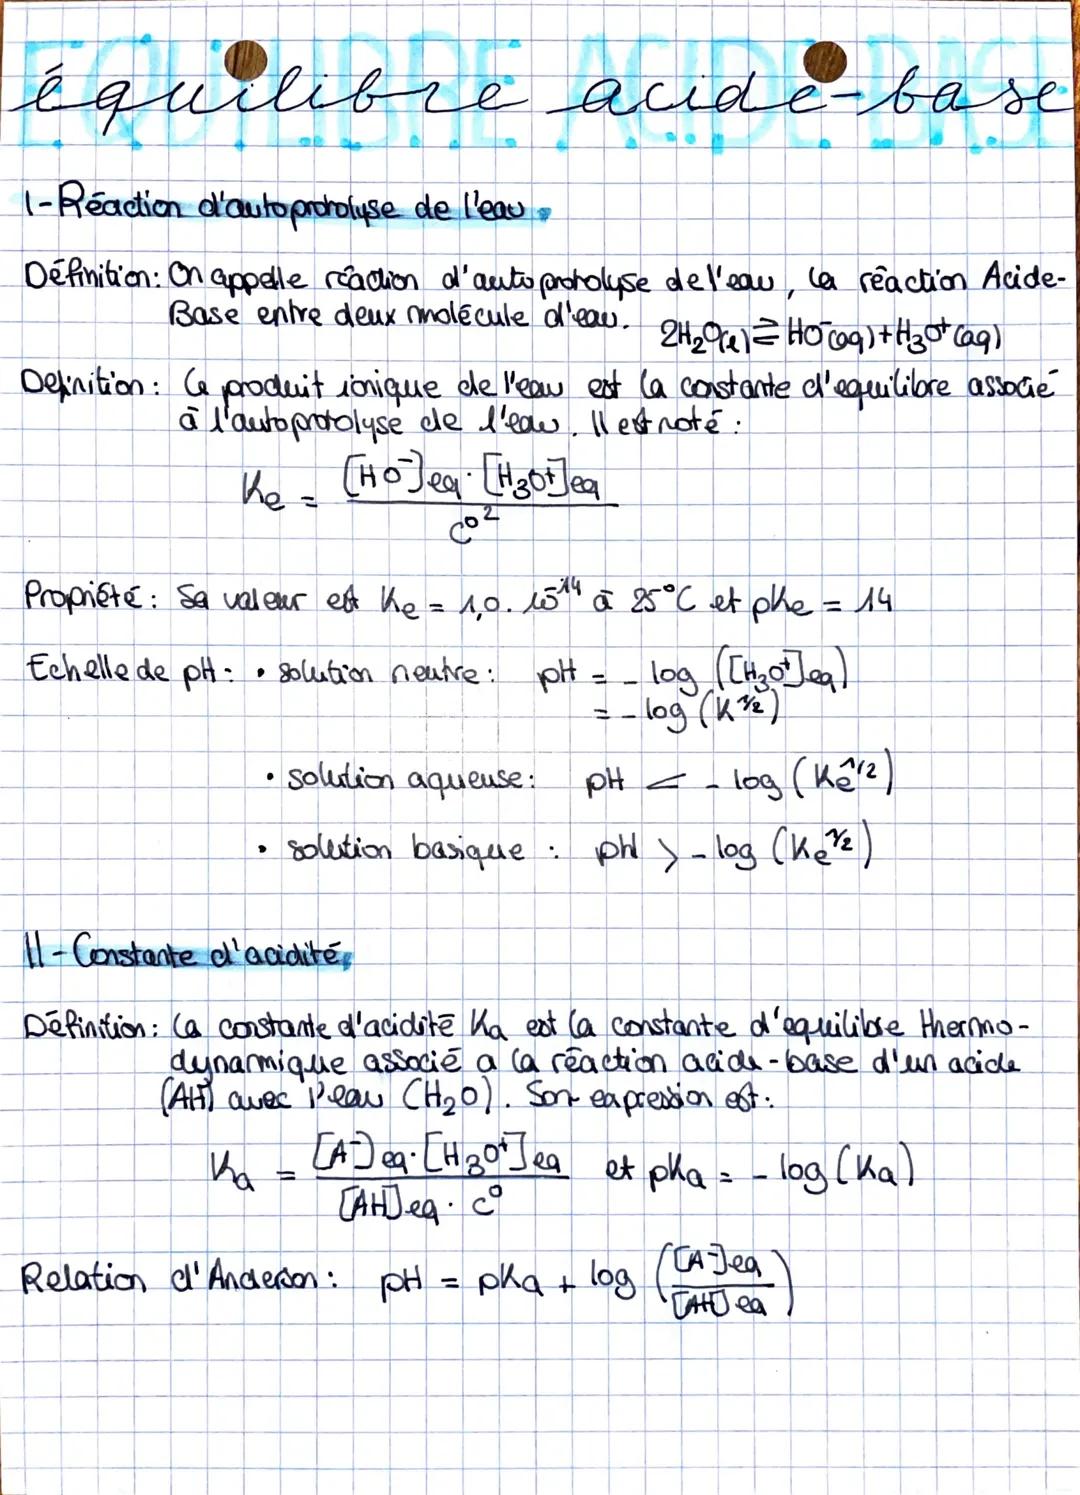 EQUILIBRE ACIDE-BASE
équilibre acide-base
I-Réaction d'autoprotolyse de l'eau
Définition: On appelle réaction d'autoprotolyse de l'eau, la réaction Acide-
Base entre deux molécule d'eau. 2H₂O(l) ⇄ HO⁻(aq) + H₃O⁺(aq)
Definition: Le produit ionique de l'eau est la constante d'equilibre associé
à l'autoprotolyse de l'eau. Il est noté :
Ke = [HO⁻]eq · [H₃O⁺]eq / c°²
Propriété : Sa valeur est Ke = 1,0. 10⁻¹⁴ à 25°C et pKe = 14
Echelle de pH : • solution neutre : pH = - log ([H₃O⁺]eq)
= - log (K^1/2)
• solution aqueuse : pH < - log (Ke^1/2)
• solution basique : pH > - log (Ke^1/2)
II-Constante d'acidité
Définition : La constante d'acidité Ka est la constante d'équilibre thermo-
dynamique associé a la réaction acide-base d'un acide
(AH) avec l'eau (H₂O). Son expression est :
Ka = [A⁻]eq · [H₃O⁺]eq / [AH]eq · c° et pKa = - log (Ka)
Relation d'Anderson : pH = pKa + log ([A⁻]eq / [AH]eq)